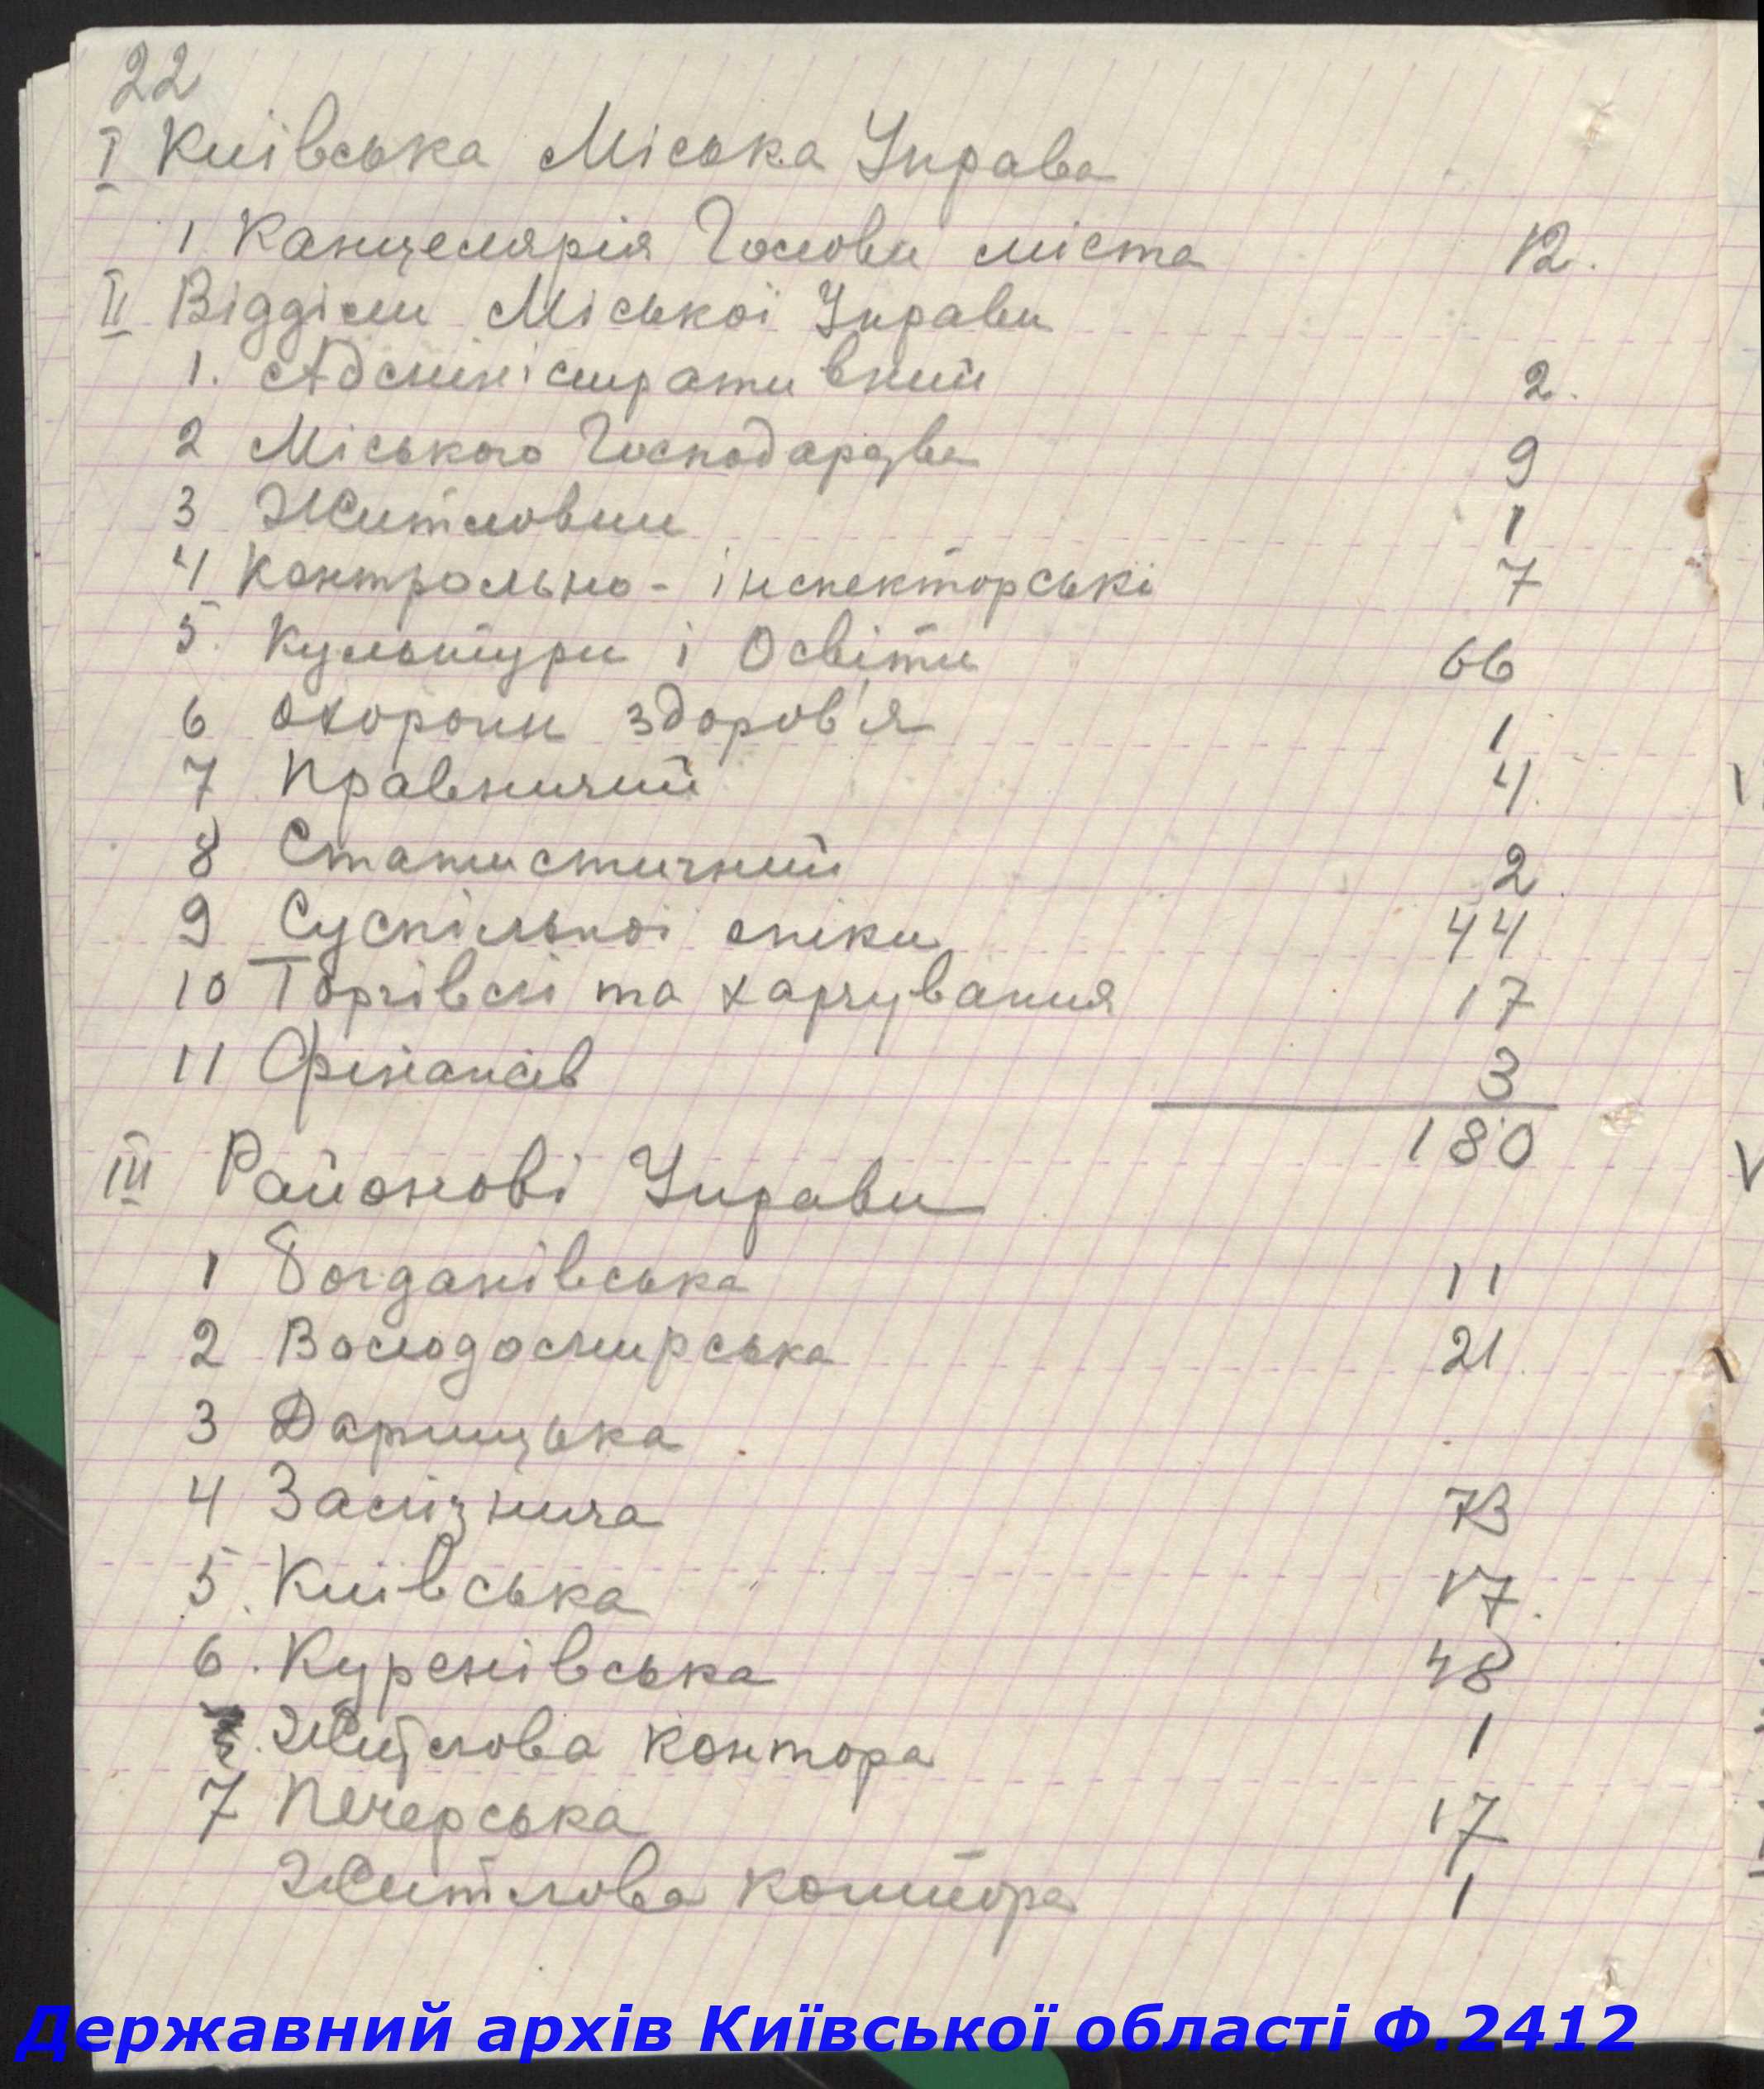 22
I Київська Міська Управа
1 Канцелярія Голови міста 12.
II Відділи Міської Управи
1. Адміністративний 2.
2 Міського Господарства 9
3 Житловий 1
4 Контрольно-інспекторські 7
5. Культури і Освіти 66
6 Охорони здоров'я 1
7 Правничий 4
8 Статистичний 2
9 Суспільної опіки 44
10 Торгівлі та харчування 17
11 Фінансів 3
180
III Районові Управи
1 Богданівська 11
2 Володомирська 21
3 Дарницька
4 Залізнича 73
5. Київська 17.
6. Куренівська 48
Житлова контора 1
7 Печерська 17
Житлова контора 1
Державний архів Київської області Ф.2412